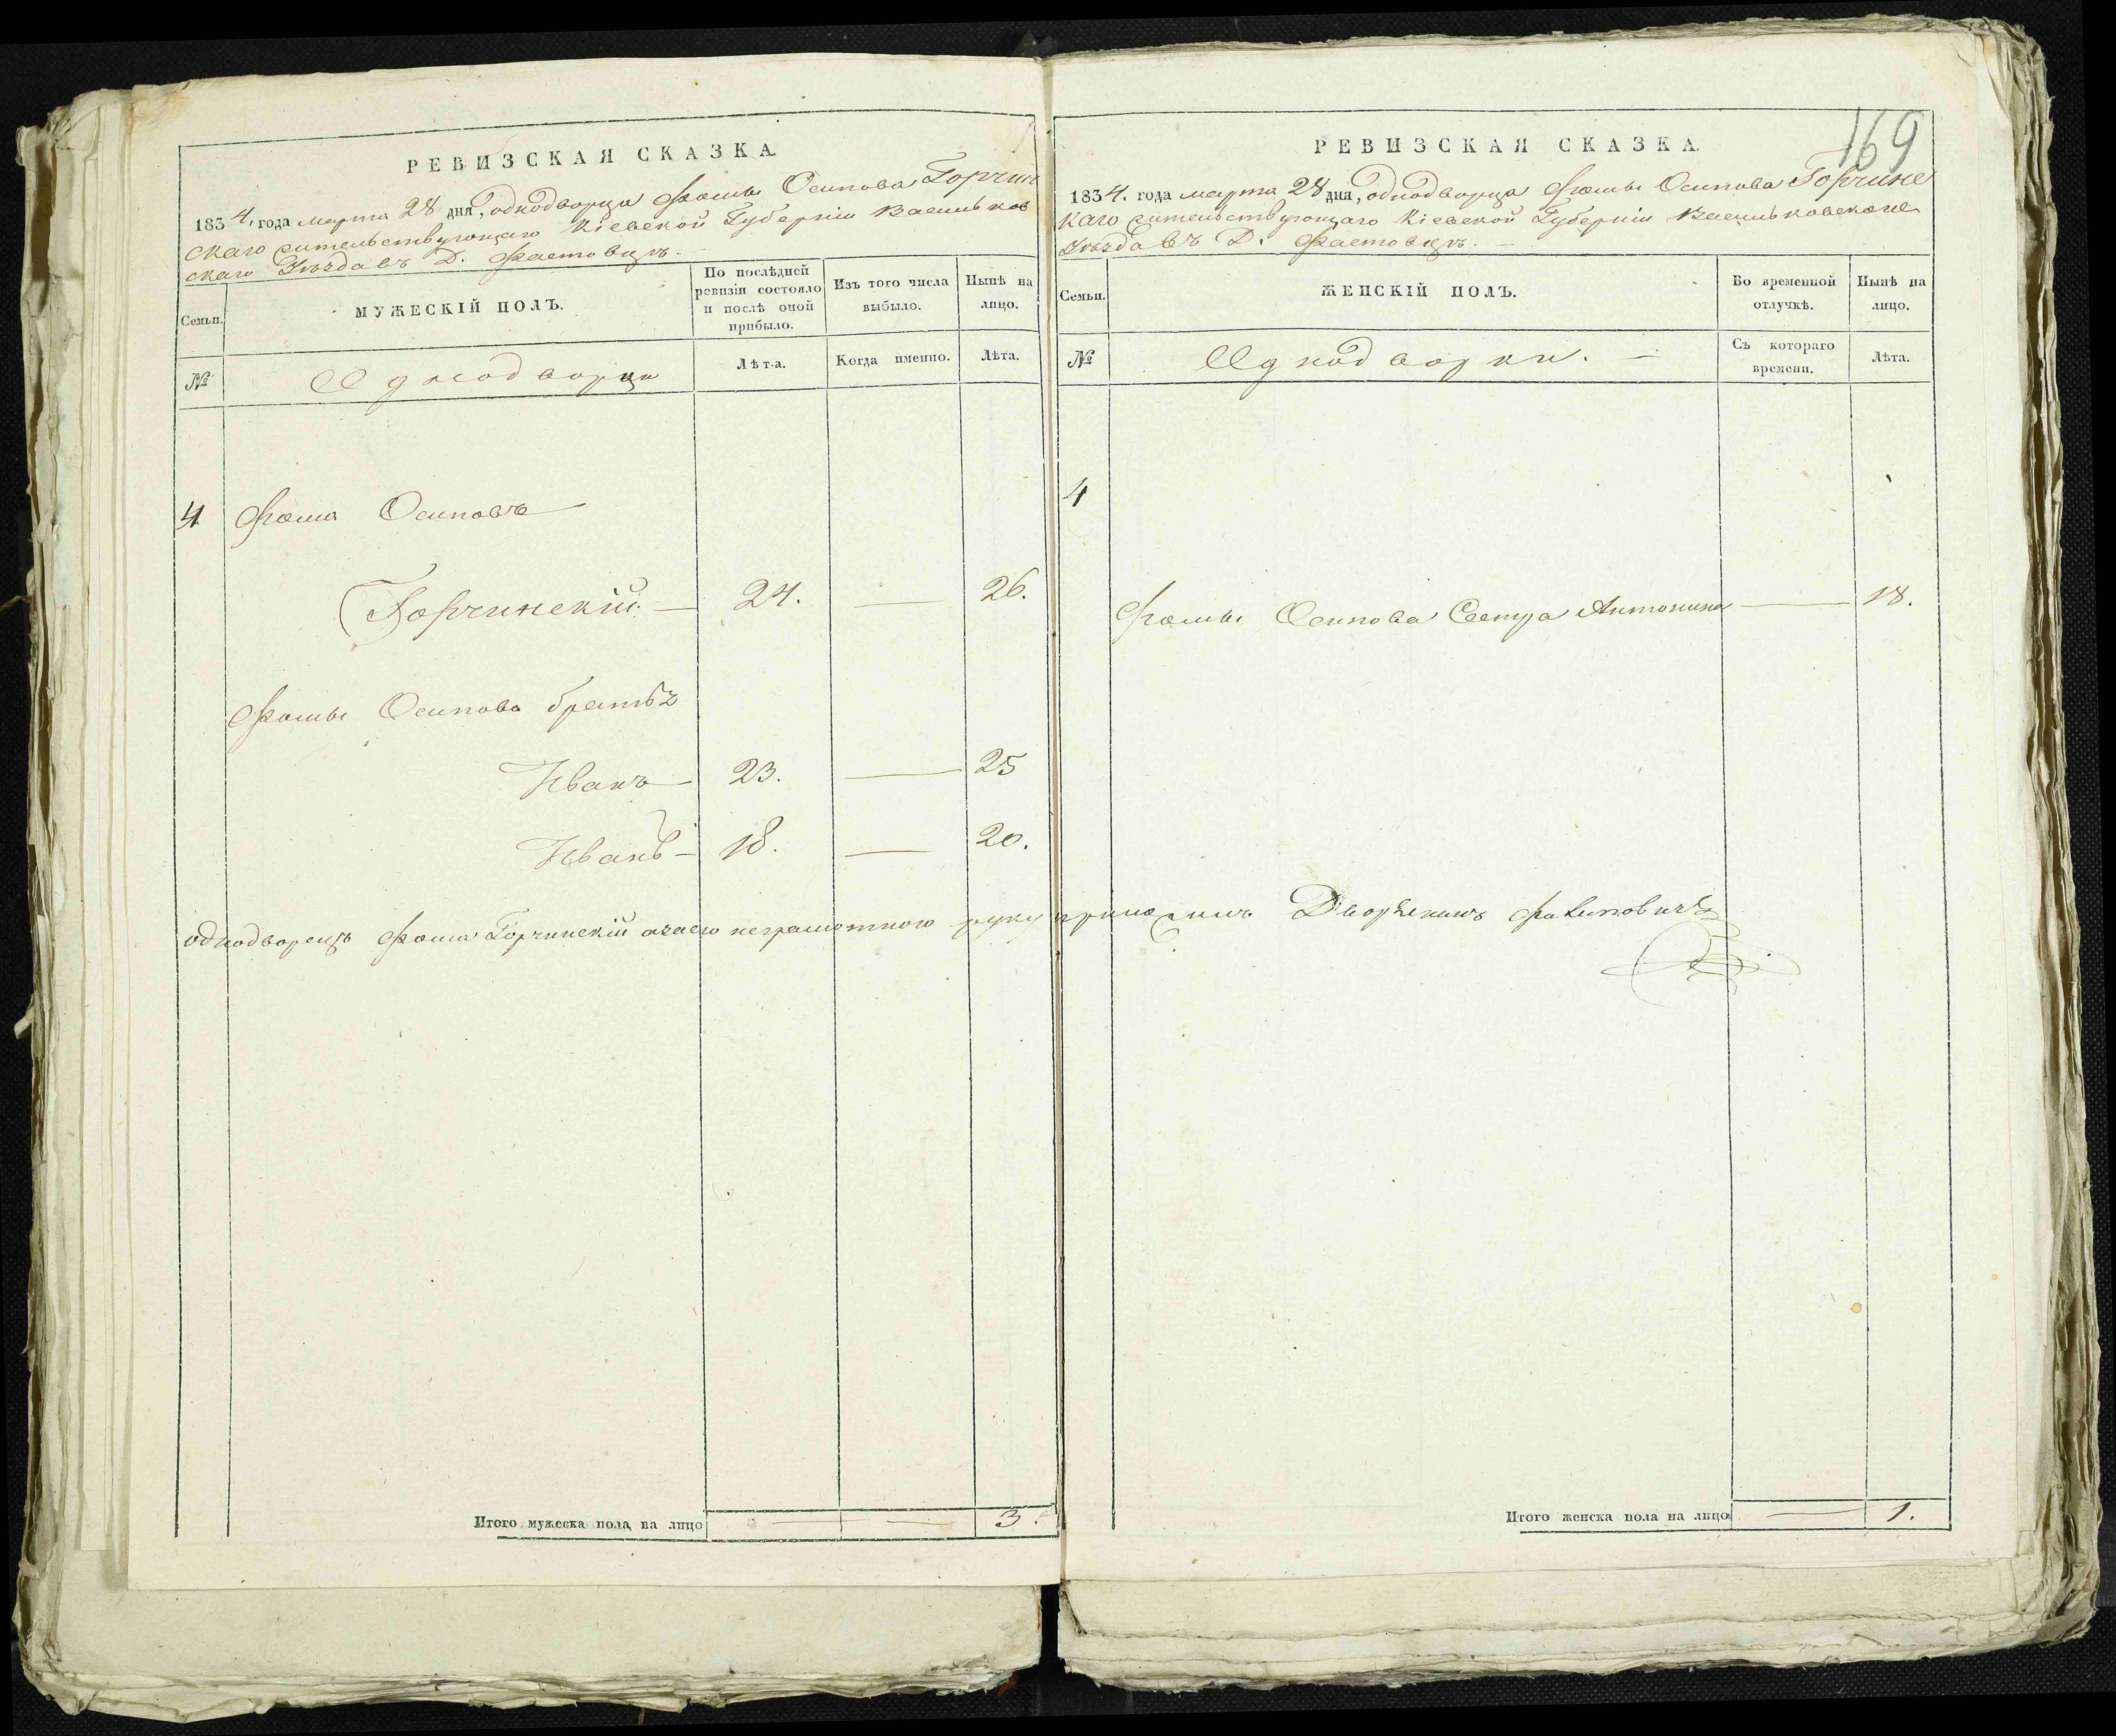 РЕВИЗСКАЯ СКАЗКА
1834. года марта 28 дня, однодворца Фомы Осипова Горчин
скаго жительствующаго Кіевской Губерніи Васильков
скаго Уѣзда въ Д. Фастовцѣ.
Семьи.
МУЖЕСКІЙ ПОЛЪ.
По послѣдней ревизіи состояло и послѣ оной прибыло.
Изъ того числа выбыло.
Нынѣ на лицо.
№
Однодворцы
Лѣта.
Когда именно.
Лѣта.
4 Фома Осиповъ
Горчинскій. — 24. — 26.
Фомы Осипова братья
Иванъ — 23. — 25
Иванъ — 18. — 20.
однодворецъ Фома Горчинскій а за его неграмотного руку приложилъ Дворянинъ
Итого мужеска пола на лицо — — 3.
169
РЕВИЗСКАЯ СКАЗКА.
1834. года марта 28 дня, однодворца Фомы Осипова Горчинс
каго жительствующаго Кіевской Губерніи Васильковскаго
Уѣзда въ Д. Фастовцѣ. —
Семьи.
ЖЕНСКІЙ ПОЛЪ.
Во временной отлучкѣ.
Нынѣ на лицо.
№
Однодворки. —
Съ котораго времени.
Лѣта.
4
Фомы Осипова Сестра Антонина — 18.
Итого женска пола на лицо — 1.